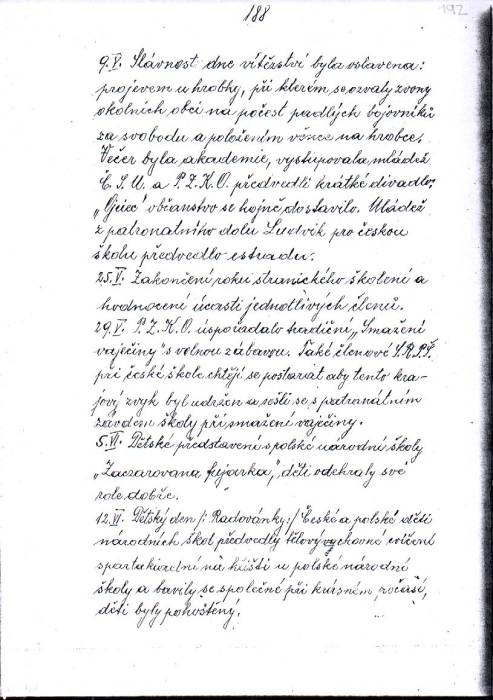 188
192
9.V. Slávnost dne vítězství byla oslavena:
projevem u hrobky, při kterém se ozvaly zvony
okolních obcí na počest padlých bojovníků
za svobodu a položením věnce na hrobce.
Večer byla akademie, vystupovala mládež
Č.S.M. a P.Z.K.O. předvedli krátké divadlo,
„Ojciec" občanstvo se hojně dostavilo. Mládež
z patronátního dolu Ludvík pro českou
školu předvedlo estradu.
25.V. Zakončení roku stranického školení a
hodnocení účasti jednotlivých členů.
29.V. P.Z.K.O. úspořadalo tradiční „Smažení
vaječiny" s volnou zábavou. Také členové S.R.P.Š.
při české škole chtějí se postarat aby tento kra-
jový zvyk byl udržen a sešli se s patronátním
závodem školy při smažení vaječiny.
5.VI. Dětské představení s polské národní školy
„Zaczarowana fujarka," děti odehrály své
role dobře.
12.VI. Dětský den /: Radovánky:/ České a polské děti
národních škol předvedly tělovýchovné cvičení
spartakiadní na hřišti u polské národní
školy a bavily se společně při krásném počasí,
děti byly pohoštěny.